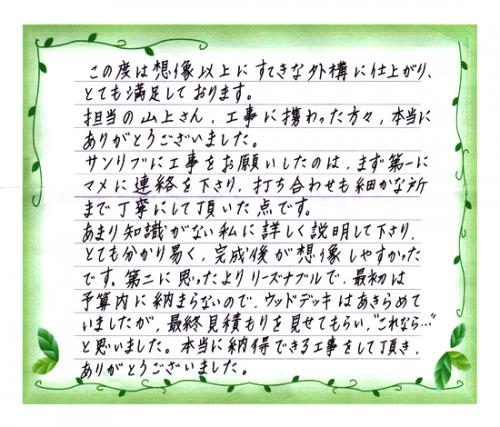 この度は想像以上にすてきな外構に仕上がり、
とても満足しております。
担当の山上さん、工事に携わった方々、本当に
ありがとうございました。
サンリブに工事をお願いしたのは、まず第一に
マメに連絡を下さり、打ち合わせも細かな所
まで丁寧にして頂いた点です。
あまり知識がない私に詳しく説明して下さり、
とても分かり易く、完成後が想像しやすかった
です。第二に思ったよりリーズナブルで、最初は
予算内に納まらないので、ウッドデッキはあきらめて
いましたが、最終見積もりを見せてもらい、"これなら…"
と思いました。本当に納得できる工事をして頂き、
ありがとうございました。